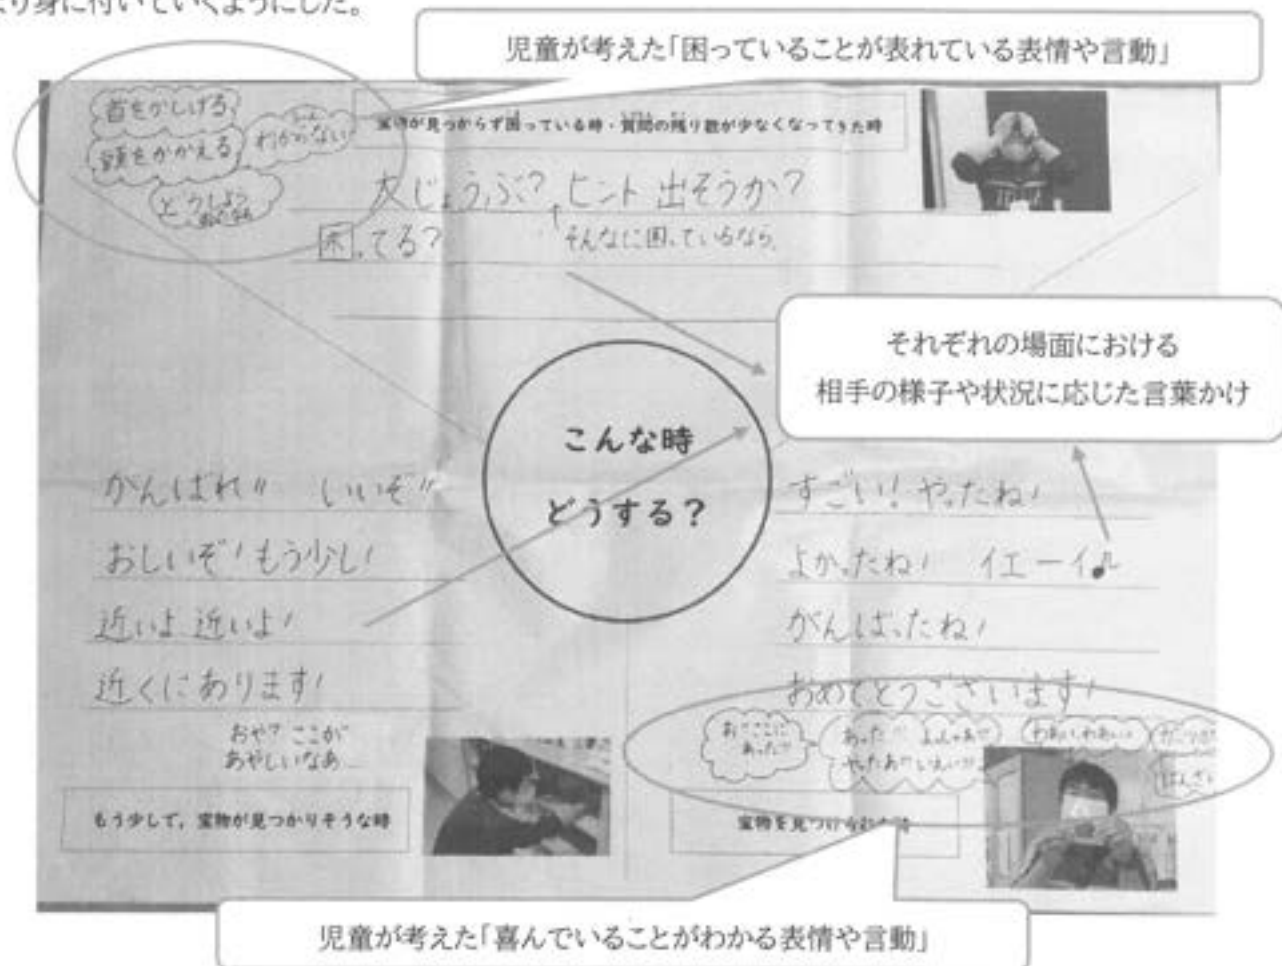 より身に付いていくようにした。
児童が考えた「困っていることが表れている表情や言動」
首をかしげる
頭をかかえる
わからない
どうしよう
宝物が見つからず困っている時・質問の残り数が少なくなってきた時
大じょうぶ? ヒント出そうか?
困ってる? そんなに困っているなら、
それぞれの場面における
相手の様子や状況に応じた言葉かけ
こんな時
どうする?
がんばれ!! いいぞ!!
おしいぞ!もう少し!
近いよ 近いよ!
近くにあります!
おや? ここが
あやしいなあ…
もう少しで,宝物が見つかりそうな時
すごい! やったね!
よかったね! イエーイ♪
がんばったね!
おめでとうございます!
あ!!ここに
あった!!
あった!! よっしゃあ!!
やったあ!! いえい!!
わあい、わあい
宝物を見つけられた時
児童が考えた「喜んでいることがわかる表情や言動」